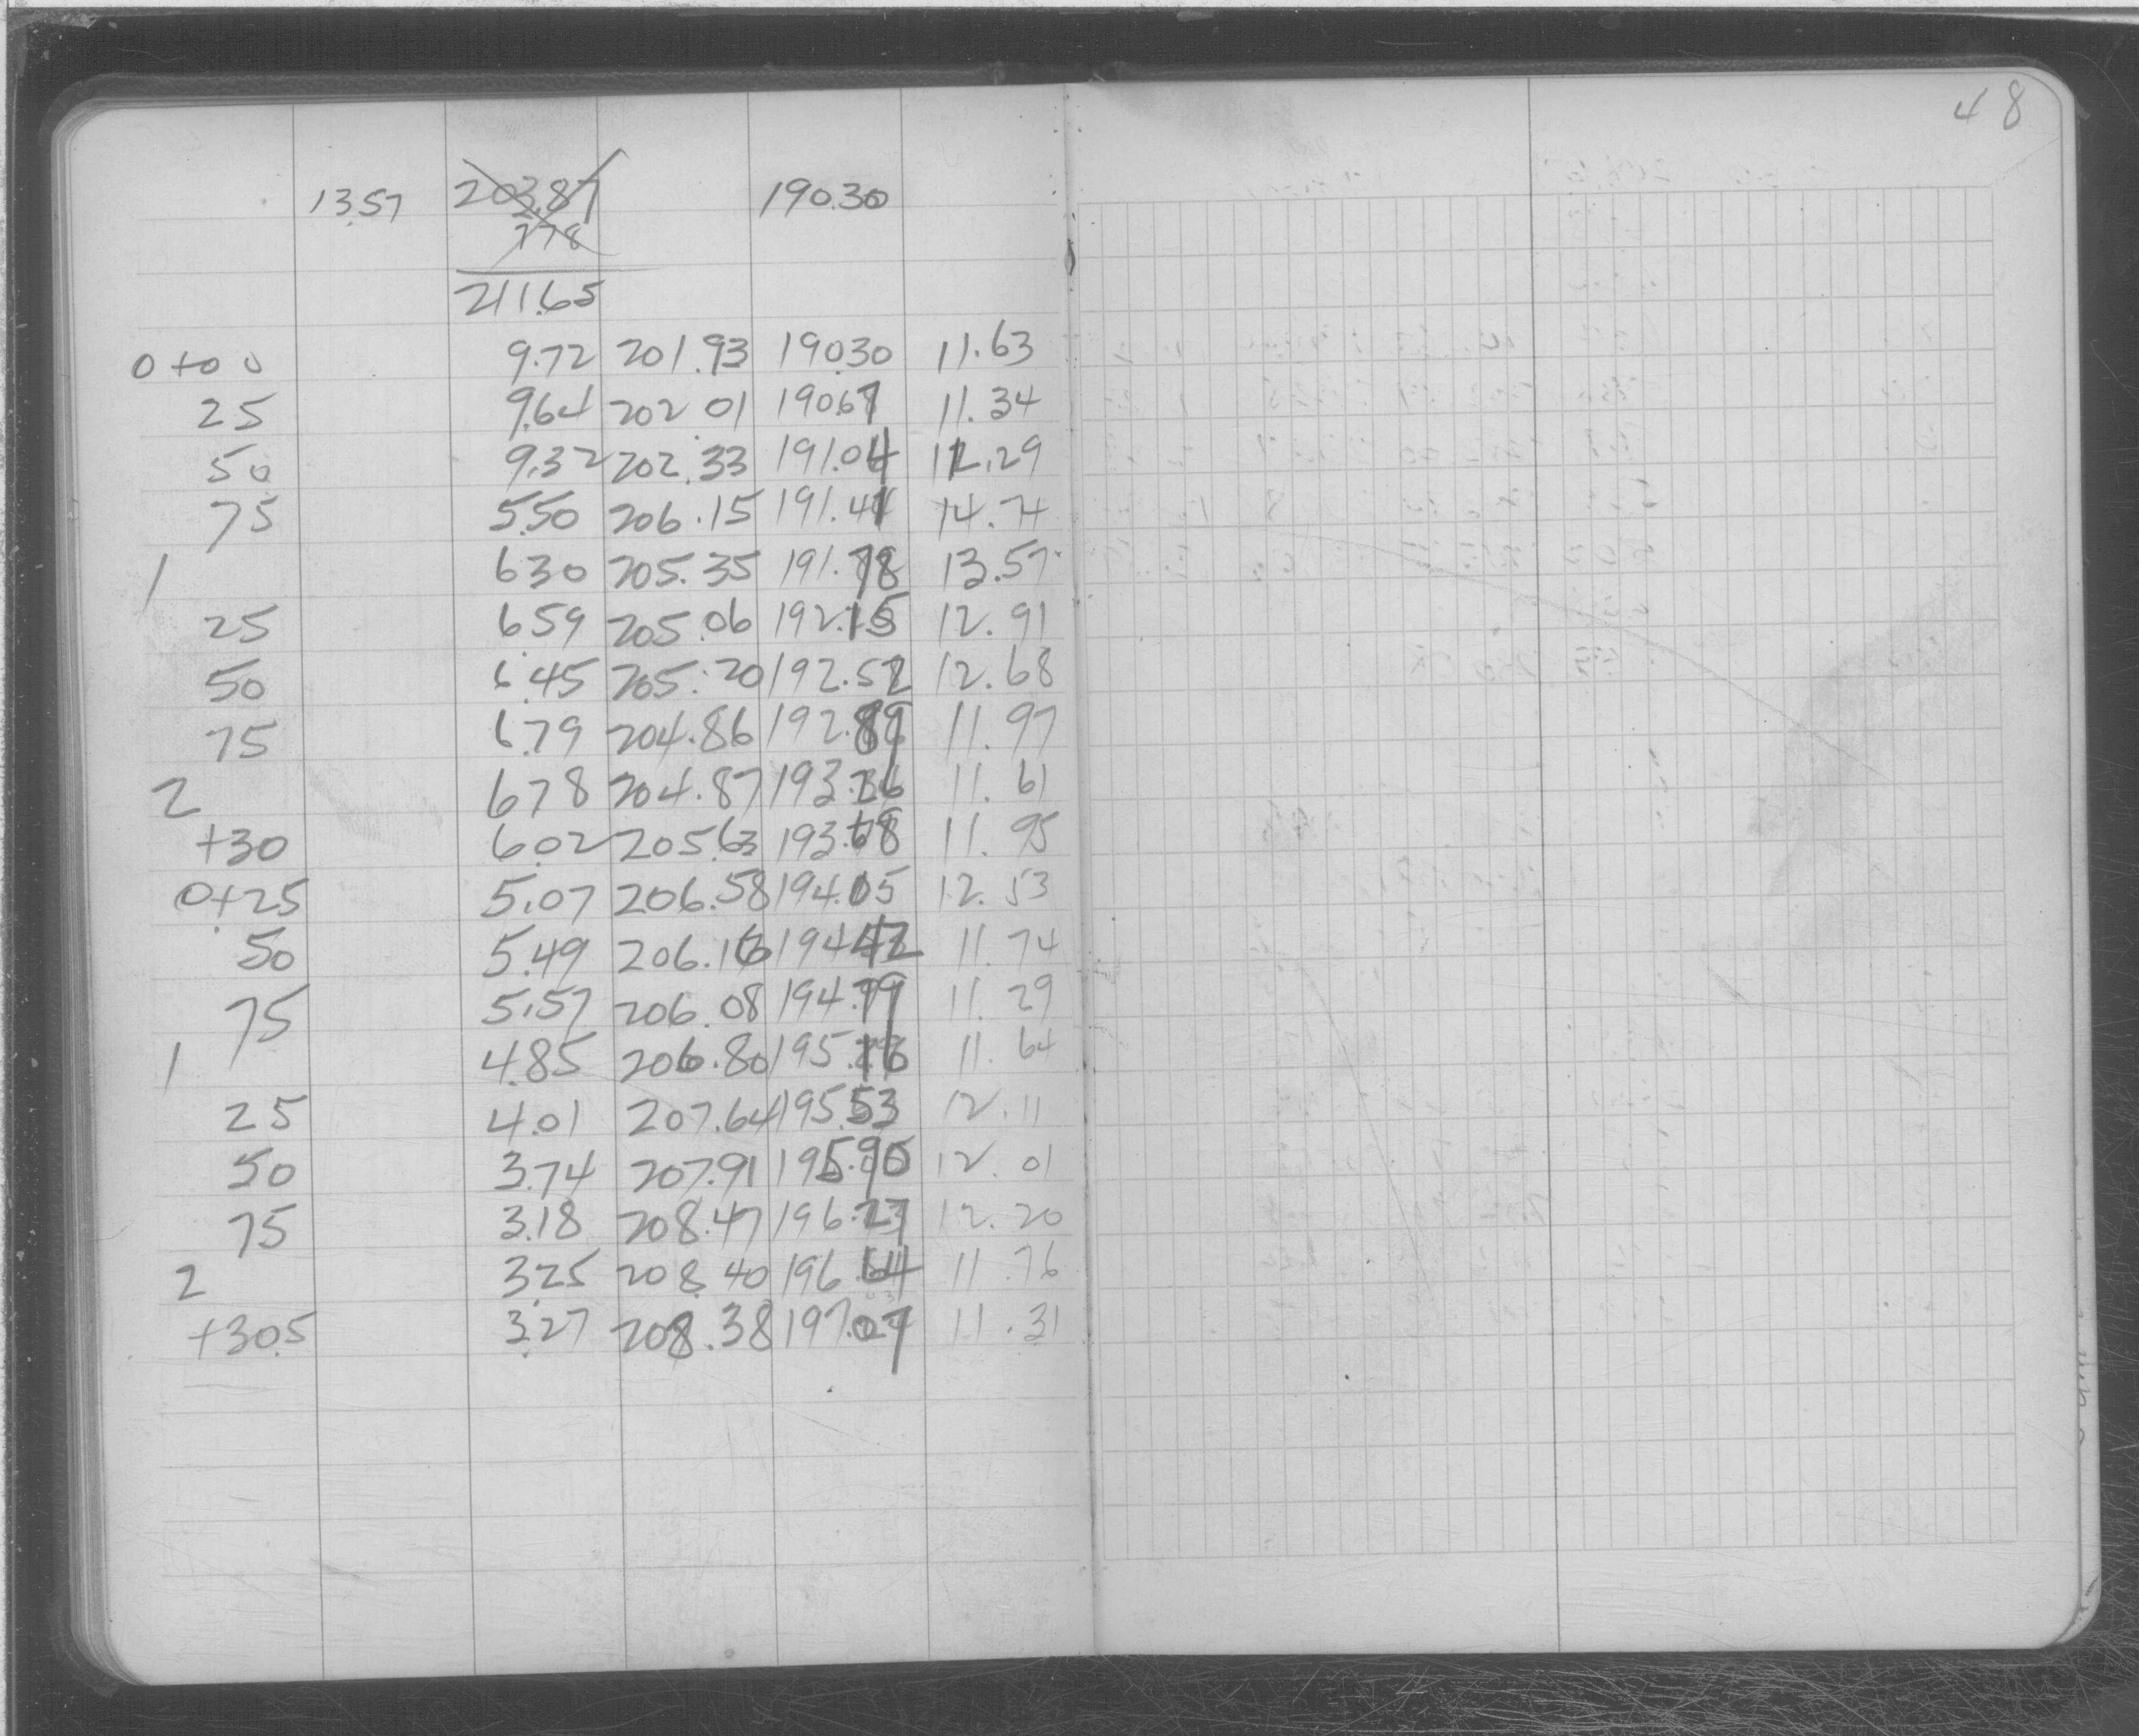 48
13.57 203.87 190.30
7.78
211.65
0+00 9.72 201.93 190.30 11.63
25 9.64 202.01 190.67 11.34
50 9.32 202.33 191.04 11.29
75 5.50 206.15 191.41 14.74
1 6.30 205.35 191.78 13.57
25 6.59 205.06 192.15 12.91
50 6.45 205.20 192.52 12.68
75 6.79 204.86 192.89 11.97
2 6.78 204.87 193.26 11.61
+30 6.02 205.63 193.68 11.95
0+25 5.07 206.58 194.05 12.53
50 5.49 206.16 194.42 11.74
75 5.57 206.08 194.79 11.29
1 4.85 206.80 195.16 11.64
25 4.01 207.64 195.53 12.11
50 3.74 207.91 195.90 12.01
75 3.18 208.47 196.27 12.20
2 3.25 208.40 196.64 11.76
+30.5 3.27 208.38 197.07 11.31